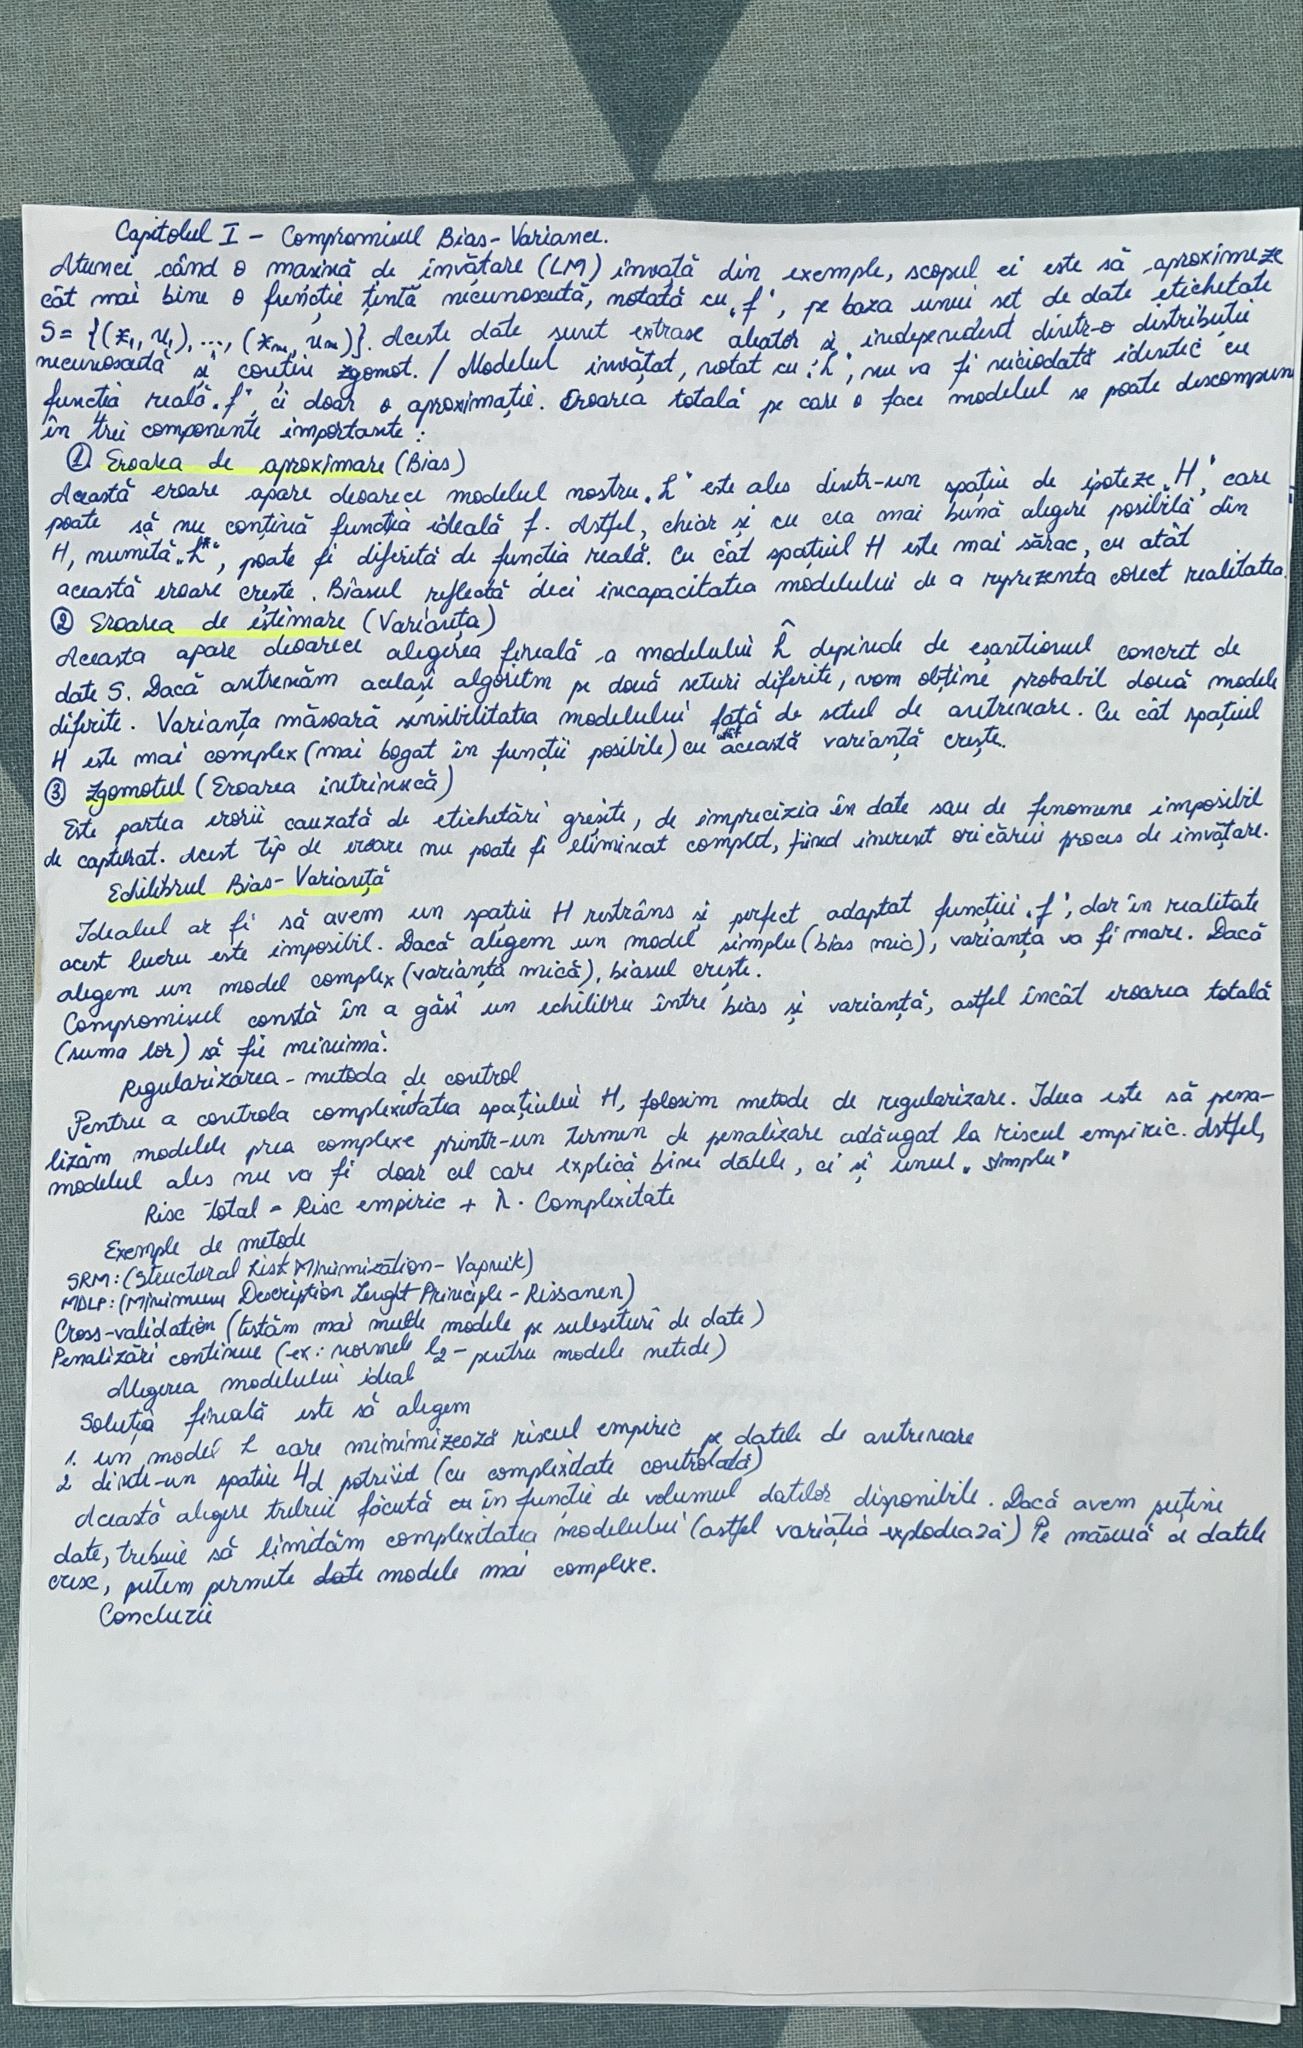 Capitolul I - Compromisul Bias-Variance.
Atunci când o mașină de învățare (LM) învață din exemple, scopul ei este să aproximeze
cât mai bine o funcție țintă necunoscută, notată cu „f", pe baza unui set de date etichetate
S = {(x₁, u₁), ..., (xₘ, uₘ)}. Aceste date sunt extrase aleator și independent dintr-o distribuție
necunoscută și conțin zgomot. / Modelul învățat, notat cu „h", nu va fi niciodată identic cu
funcția reală „f", ci doar o aproximație. Eroarea totală pe care o face modelul se poate descompune
în trei componente importante:
① Eroarea de aproximare (Bias)
Această eroare apare deoarece modelul nostru „h" este ales dintr-un spațiu de ipoteze „H", care
poate să nu conțină funcția ideală f. Astfel, chiar și cu cea mai bună alegere posibilă din
H, numită „h*", poate fi diferită de funcția reală. Cu cât spațiul H este mai sărac, cu atât
această eroare crește. Biasul reflectă deci incapacitatea modelului de a reprezenta corect realitatea.
② Eroarea de estimare (Varianța)
Aceasta apare deoarece alegerea finală a modelului ĥ depinde de eșantionul concret de
date S. Dacă antrenăm același algoritm pe două seturi diferite, vom obține probabil două modele
diferite. Varianța măsoară sensibilitatea modelului față de setul de antrenare. Cu cât spațiul
H este mai complex (mai bogat în funcții posibile) cu atât această varianță crește.
③ Zgomotul (Eroarea intrinsecă)
Este partea erorii cauzată de etichetări greșite, de imprecizia în date sau de fenomene imposibil
de capturat. Acest tip de eroare nu poate fi eliminat complet, fiind inerent oricărui proces de învățare.
Echilibrul Bias-Varianță
Idealul ar fi să avem un spațiu H restrâns și perfect adaptat funcției „f", dar în realitate
acest lucru este imposibil. Dacă alegem un model simplu (bias mic), varianța va fi mare. Dacă
alegem un model complex (varianță mică), biasul crește.
Compromisul constă în a găsi un echilibru între bias și varianță, astfel încât eroarea totală
(suma lor) să fie minimă.
Regularizarea - metoda de control
Pentru a controla complexitatea spațiului H, folosim metode de regularizare. Ideea este să pena-
lizăm modelele prea complexe printr-un termen de penalizare adăugat la riscul empiric. Astfel,
modelul ales nu va fi doar cel care explică bine datele, ci și unul „simplu"
Risc total = Risc empiric + λ · Complexitate
Exemple de metode
SRM: (Structural Risk Minimization - Vapnik)
MDLP: (Minimum Description Lenght Principle - Rissanen)
Cross-validation (testăm mai multe modele pe subseturi de date)
Penalizări continue (ex: normele l₂ - pentru modele netede)
Alegerea modelului ideal
Soluția finală este să alegem
1. un model h care minimizează riscul empiric pe datele de antrenare
2 dintr-un spațiu Hd potrivid (cu complexitate controlată)
Această alegere trebuie făcută în funcție de volumul datelor disponibile. Dacă avem puține
date, trebuie să limităm complexitatea modelului (astfel variația explodează) Pe măsură ce datele
cresc, putem permite modele mai complexe.
Concluzii